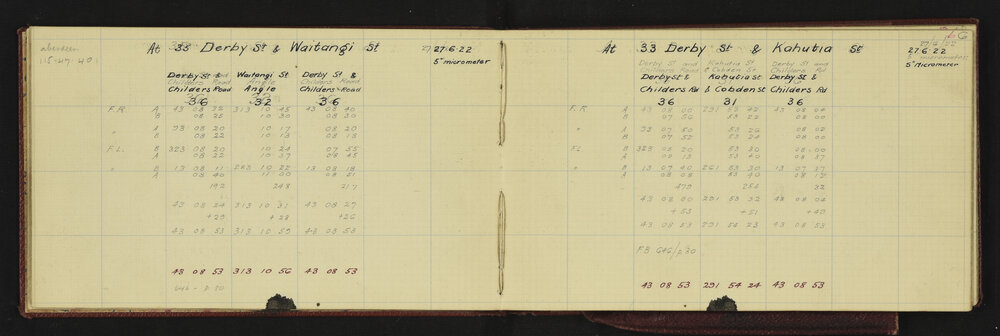 aberdeen
115-47-40
At 35 Derby St & Waitangi St 27·6·22
5" micrometer
Derby St & Waitangi St Derby St &
Childers Road Angle Childers Road
36 32 36
F.R. A 43 08 32 313 10 45 43 08 40
B 08 25 10 30 08 30
" A 93 08 20 10 17 08 20
B 08 22 10 13 08 18
F.L. B 323 08 20 10 24 07 55
A 08 22 10 37 08 45
" B 13 08 11 283 10 22 13 08 18
A 08 40 11 00 08 21
192 248 217
43 08 24 313 10 31 43 08 27
+29 +28 +26
43 08 53 313 10 59 43 08 53
43 08 53 313 10 56 43 08 53
646 - p 30
At 33 Derby St & Kahutia St 27·6·22
5" Micrometer
Derby St and Kahutia St Derby St and
Childers Road & Cobden St Childers Rd
Derby St & Kahutia St Derby St &
Childers Rd & Cobden St Childers Rd
36 31 36
F.R. A 43 08 00 291 53 42 43 08 00
B 07 56 53 22 08 00
" A 93 07 50 53 26 08 02
B 07 52 53 24 08 00
F.L. B 323 08 20 53 30 08 00
A 08 13 53 40 08 37
" B 13 07 40 261 53 30 13 07 37
A 08 08 53 40 08 12
479 254 32
43 08 00 291 53 32 43 08 04
+53 +51 +49
43 08 53 291 54 23 43 08 53
F.B 646/p30
43 08 53 291 54 24 43 08 53